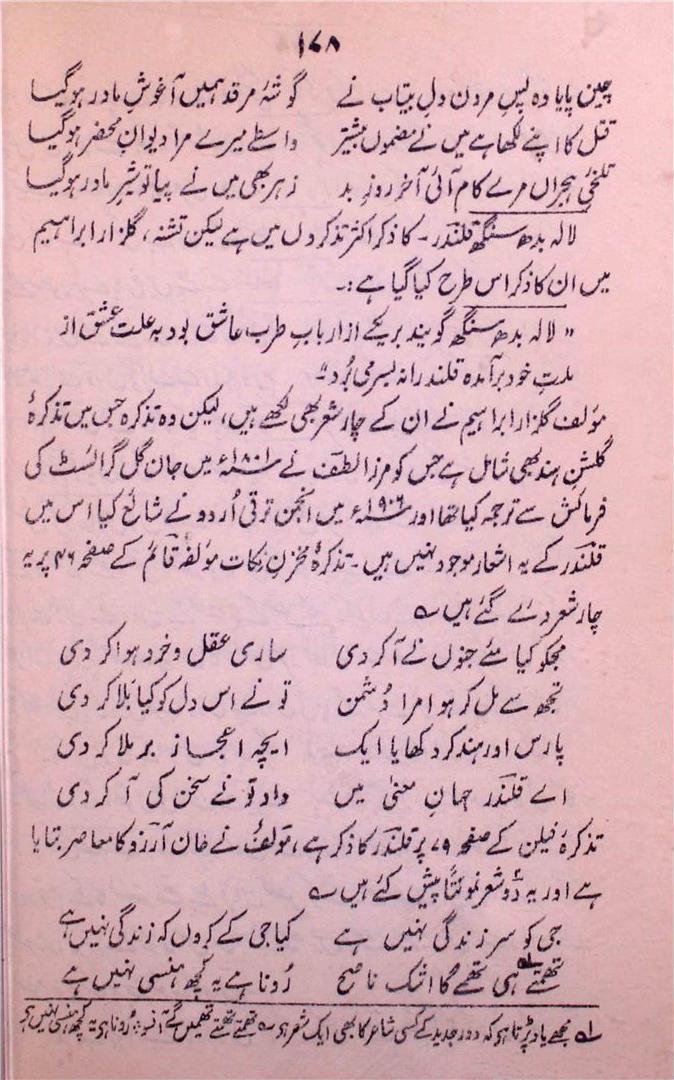 ۱۶۸
چین پایا دہ پسِ مردن دلِ بیتاب نے گوشۂ مرقد ہمیں آغوشِ مادر ہوگیا
قتل کا اپنے لکھا ہے میں نے مضموں بیشتر واسطے میرے مرا دیوان محضر ہوگیا
تلخیٔ ہجراں مرے کام آئی آخر روزِ بد زہر بھی میں نے پیا تو شیرِ مادر ہوگیا
لالہ بدھ سنگھ قلندر ۔ کا ذکر اکثر تذکروں میں ہے لیکن تشنہ، گلزار ابراہیم
میں ان کا ذکر اس طرح کیا گیا ہے :۔
" لالہ بدھ سنگھ گویند بر یکے از اربابِ طرب عاشق بود بہ علت عشق از
ملتِ خود برآمدہ قلندرانہ بسر می بُرد "
مؤلف گلزار ابراہیم نے ان کے چار شعر بھی لکھے ہیں، لیکن وہ تذکرہ جس میں تذکرۂ
گلشنِ ہند بھی شامل ہے جس کو مرزا لطف نے ۱۸۰۱ء میں جان گل گرائسٹ کی
فرمائش سے ترجمہ کیا تھا اور ۱۹۰۶ء میں انجمن ترقی اُردو نے شائع کیا اس میں
قلندر کے یہ اشعار موجود نہیں ہیں ۔ تذکرۂ مخزنِ نکات مؤلفۂ قائم کے صفحہ ۴۶ پر یہ
چار شعر دئے گئے ہیں ؎
مجکو کیا مئے جنوں نے آ کر دی ساری عقل و خرد ہوا کر دی
تجھ سے مل کر ہوا مرا دُشمن تو نے اس دل کو کیا بَلا کر دی
پارس اور ہند کر دکھایا ایک ایچہ اعجاز برملا کر دی
اے قلندر جہانِ معنیٰ میں داد تو نے سخن کی آ کر دی
تذکرۂ فیلن کے صفحہ ۷۹ پر قلندر کا ذکر ہے، مؤلف نے خان آرزو کا معاصر بتایا
ہے اور یہ دُو شعر نمونتاً پیش کئے ہیں ؎
جی کو سرِ زندگی نہیں ہے کیا جی کے کروں کہ زندگی نہیں ہے
تھمتے ہی تھمے گا اشک ناصح رُونا ہے یہ کچھ ہنسی نہیں ہے
لہ مجھے یاد پڑتا ہو کہ دورِ جدید کے کسی شاعر کا بھی ایک شعر ہو ؎ تھمتے تھمتے تھمیں گے آنسو ؞ رُونا ہو یہ کچھ ہنسی نہیں ہو